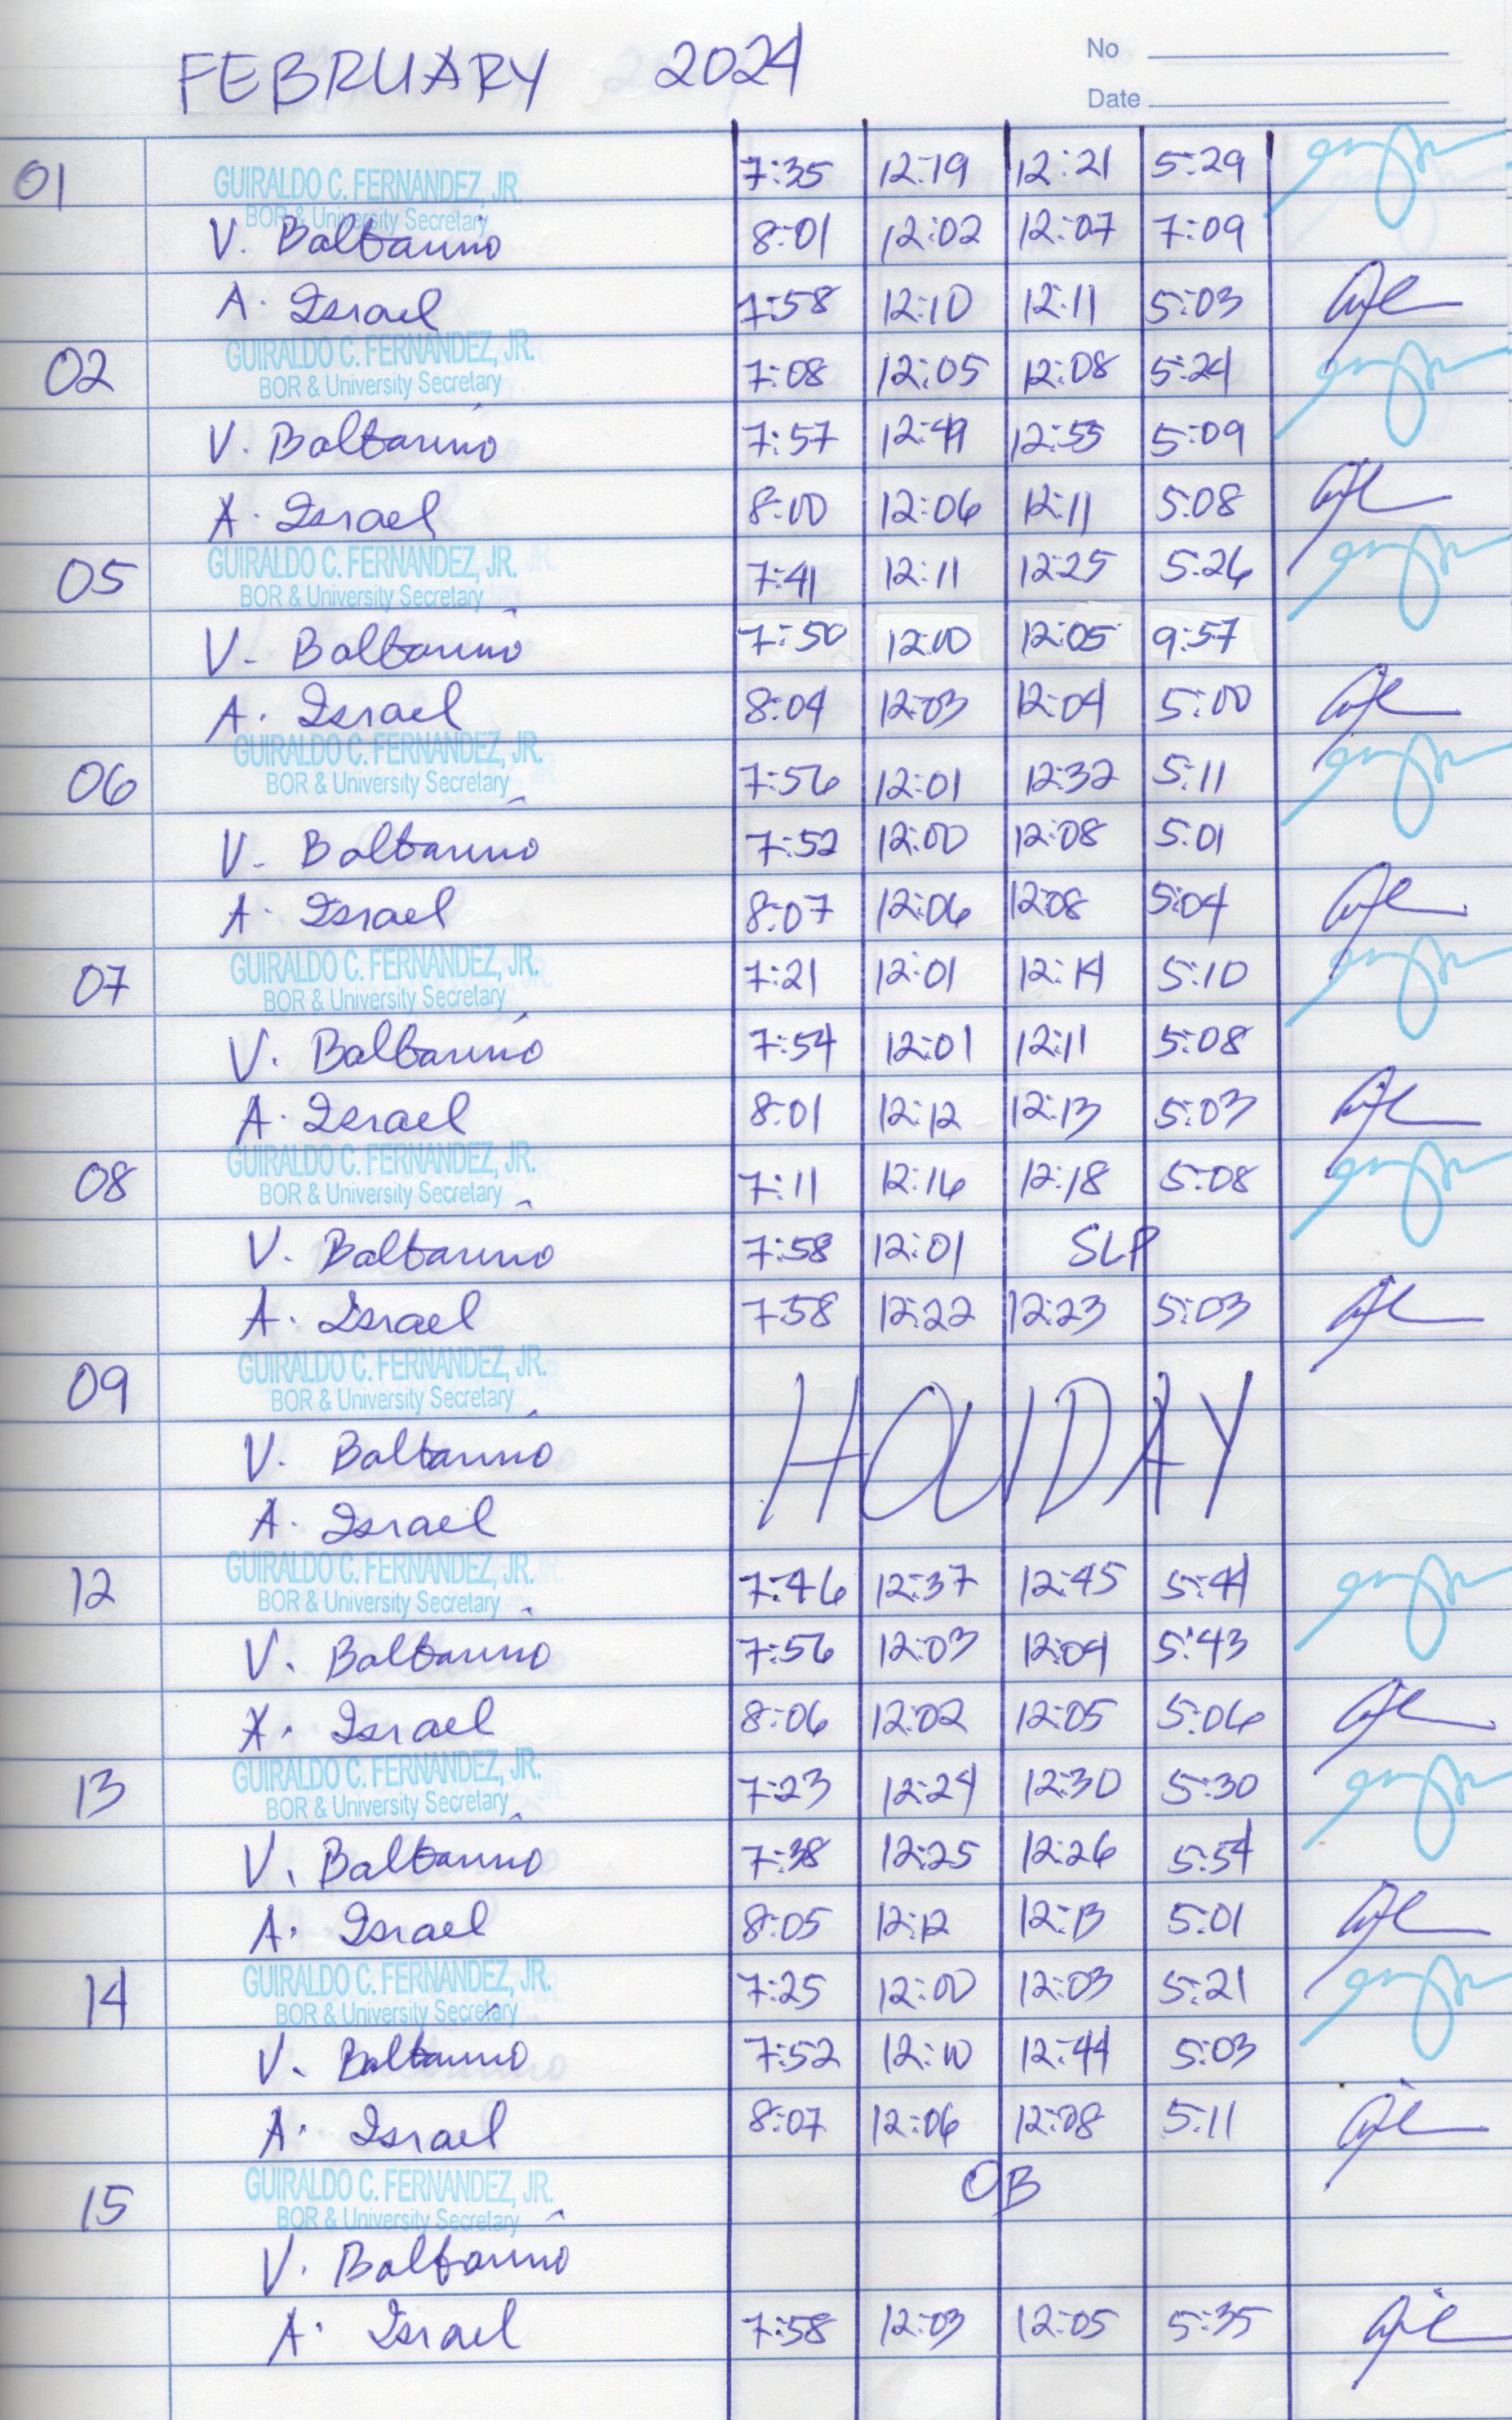 FEBRUARY 2024
No
Date
01 GUIRALDO C. FERNANDEZ, JR. 7:35 12:19 12:21 5:29
BOR & University Secretary
V. Baltarino 8:01 12:02 12:07 7:09
A. Israel 7:58 12:10 12:11 5:03
02 GUIRALDO C. FERNANDEZ, JR. 7:08 12:05 12:08 5:24
BOR & University Secretary
V. Baltarino 7:57 12:49 12:55 5:09
A. Israel 8:00 12:06 12:11 5:08
05 GUIRALDO C. FERNANDEZ, JR. 7:41 12:11 12:25 5:26
BOR & University Secretary
V. Baltarino 7:50 12:00 12:05 9:57
A. Israel 8:04 12:03 12:04 5:00
06 GUIRALDO C. FERNANDEZ, JR. 7:56 12:01 12:32 5:11
BOR & University Secretary
V. Baltarino 7:52 12:00 12:08 5:01
A. Israel 8:07 12:06 12:08 5:04
07 GUIRALDO C. FERNANDEZ, JR. 7:21 12:01 12:14 5:10
BOR & University Secretary
V. Baltarino 7:54 12:01 12:11 5:08
A. Israel 8:01 12:12 12:13 5:03
08 GUIRALDO C. FERNANDEZ, JR. 7:11 12:16 12:18 5:08
BOR & University Secretary
V. Baltarino 7:58 12:01 SLP
A. Israel 7:58 12:22 12:23 5:03
09 GUIRALDO C. FERNANDEZ, JR.
BOR & University Secretary
V. Baltarino HOLIDAY
A. Israel
12 GUIRALDO C. FERNANDEZ, JR. 7:46 12:37 12:45 5:44
BOR & University Secretary
V. Baltarino 7:56 12:03 12:04 5:43
A. Israel 8:06 12:02 12:05 5:06
13 GUIRALDO C. FERNANDEZ, JR. 7:23 12:24 12:30 5:30
BOR & University Secretary
V. Baltarino 7:38 12:25 12:26 5:54
A. Israel 8:05 12:12 12:13 5:01
14 GUIRALDO C. FERNANDEZ, JR. 7:25 12:00 12:03 5:21
BOR & University Secretary
V. Baltarino 7:52 12:10 12:44 5:03
A. Israel 8:07 12:06 12:08 5:11
15 GUIRALDO C. FERNANDEZ, JR. OB
BOR & University Secretary
V. Baltarino
A. Israel 7:58 12:03 12:05 5:35